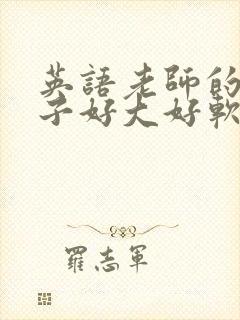 英語老師的
子好大好軟
羅志軍